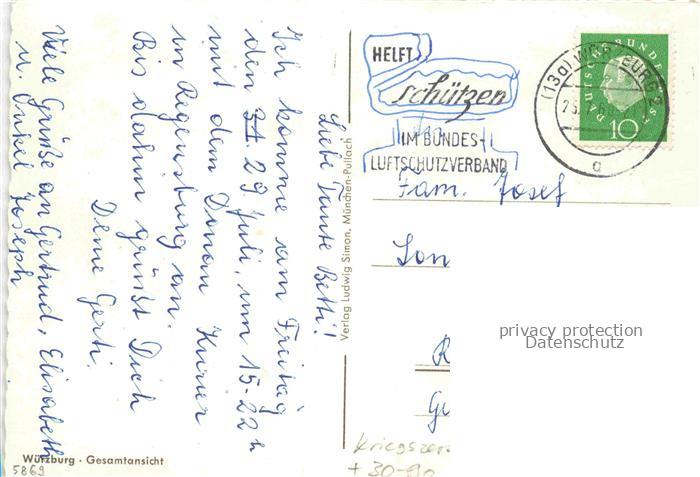 Liebe Tante Betti!
Ich komme am Freitag
den 29 Juli, um 15-22 h
mit dem Donau Kurier
in Regensburg an.
Bis dahin grüßt Dich
Deine Gerti.
Viele Grüße an Gertrud, Elisabeth
u. Onkel Joseph
Verlag Ludwig Simon, München-Pullach
Würzburg · Gesamtansicht
5869
HELFT
schützen
IM BUNDES-
LUFTSCHUTZVERBAND
(13a) WÜRZBURG 2
a
DEUTSCHE BUNDESPOST
10
Fam. Josef
Son
R
privacy protection
Datenschutz
+ 30-90